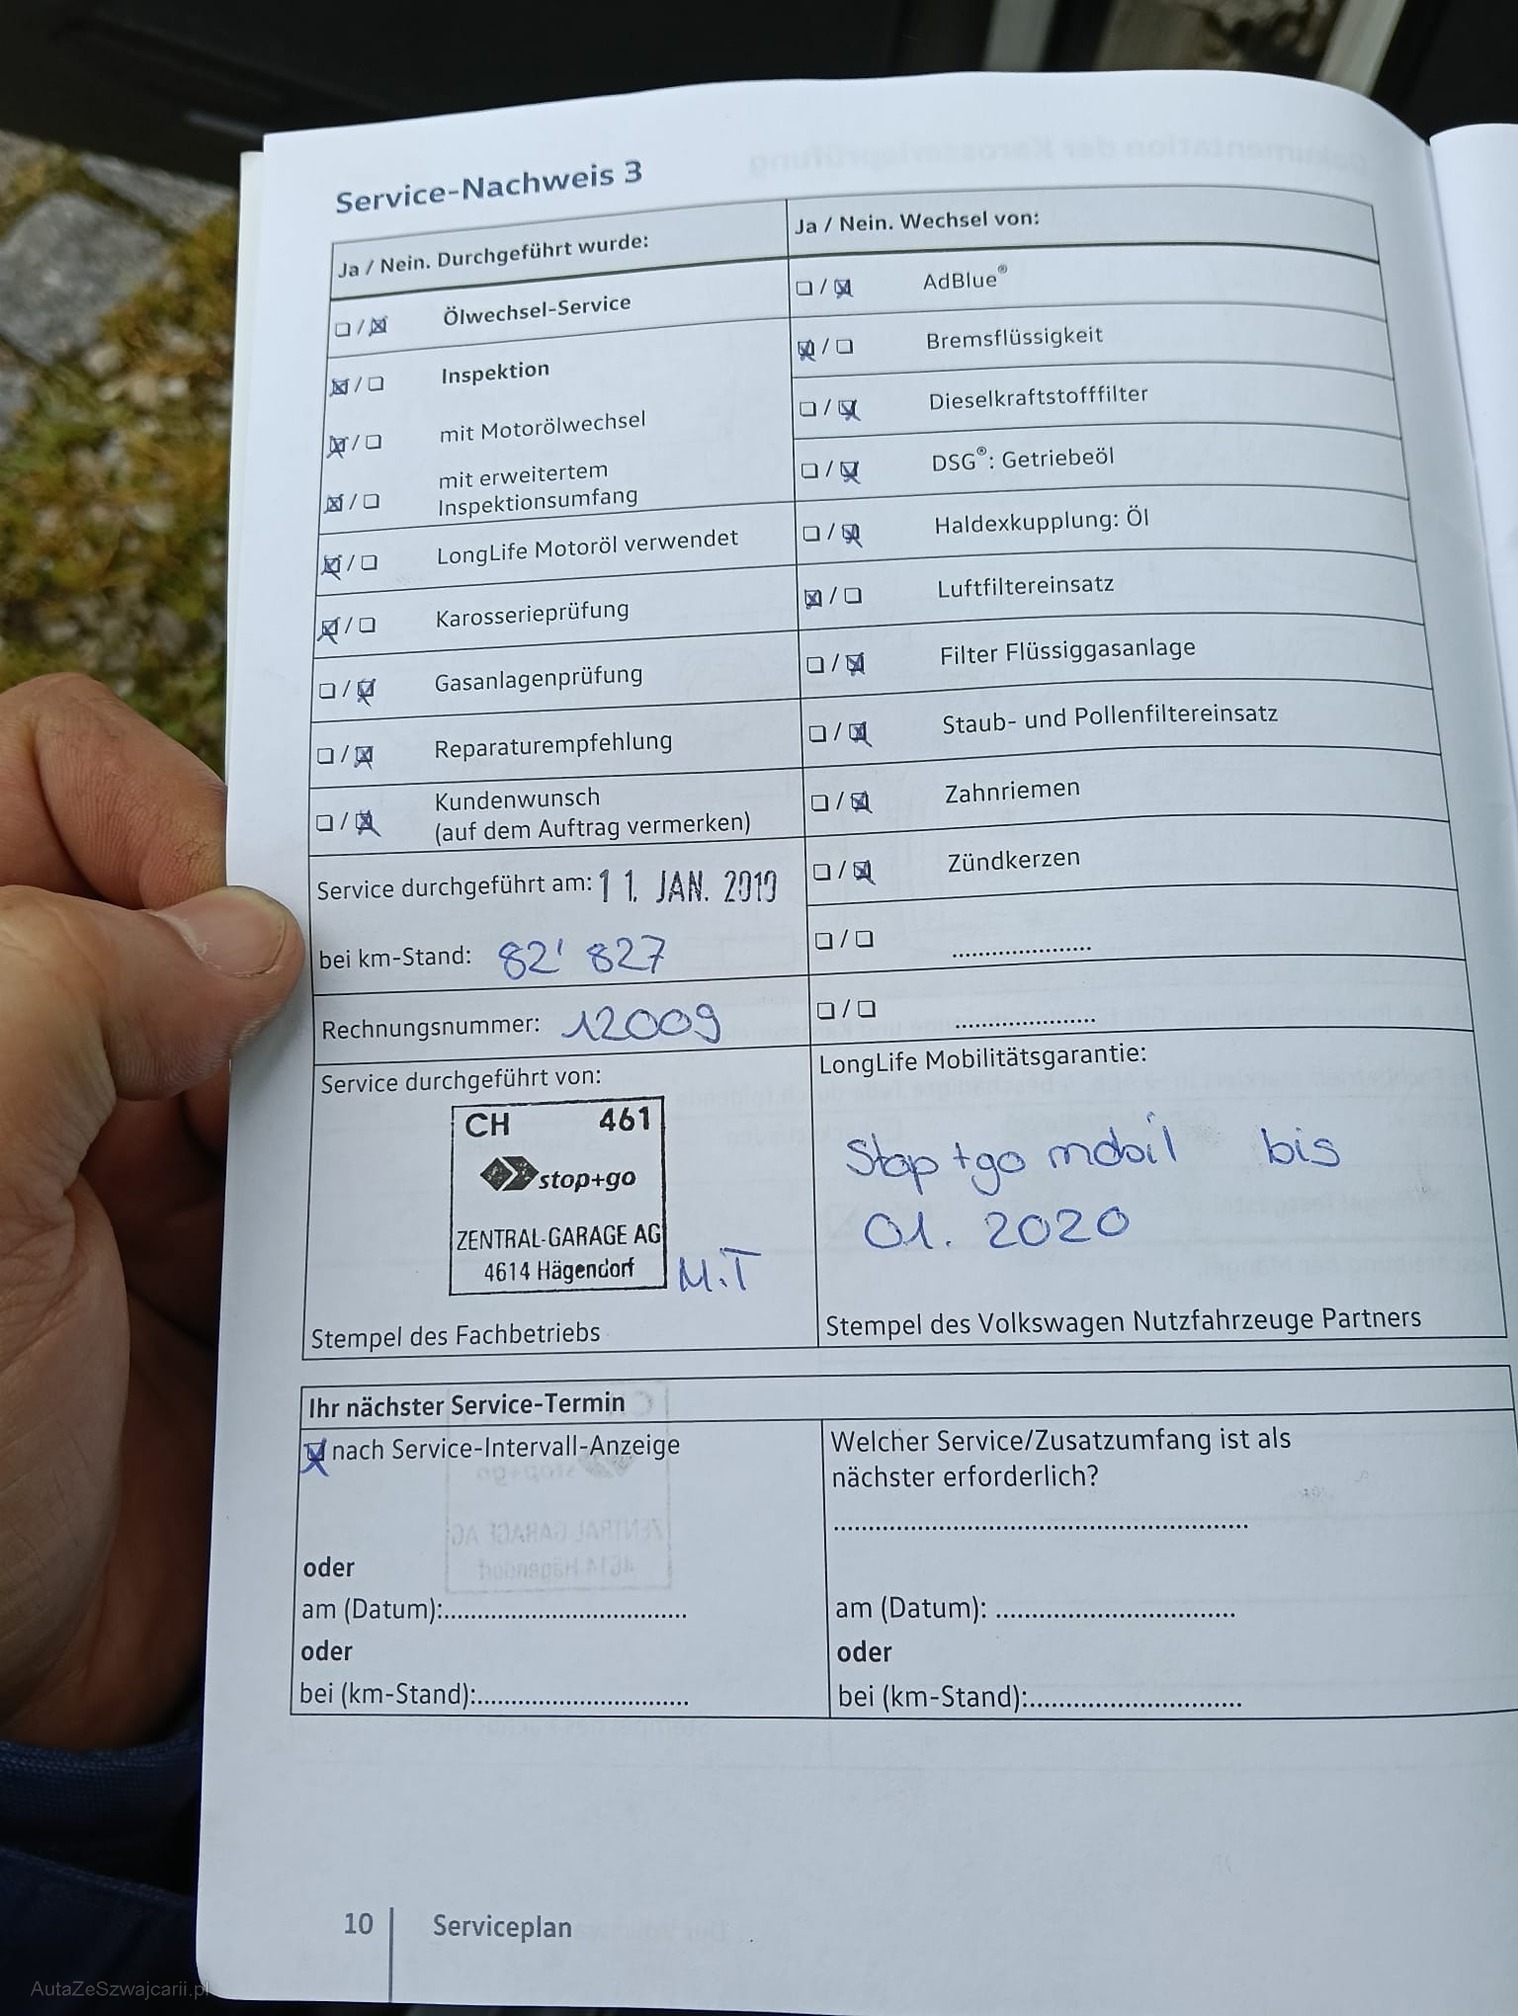 Service-Nachweis 3
Ja / Nein. Durchgeführt wurde:
☐ / ☒ Ölwechsel-Service
☒ / ☐ Inspektion
☒ / ☐ mit Motorölwechsel
☒ / ☐ mit erweitertem
Inspektionsumfang
☒ / ☐ LongLife Motoröl verwendet
☒ / ☐ Karosserieprüfung
☐ / ☒ Gasanlagenprüfung
☐ / ☒ Reparaturempfehlung
☐ / ☒ Kundenwunsch
(auf dem Auftrag vermerken)
Service durchgeführt am: 11. JAN. 2019
bei km-Stand: 82' 827
Rechnungsnummer: 12009
Service durchgeführt von:
CH 461
stop+go
ZENTRAL-GARAGE AG
4614 Hägendorf
M.T
Stempel des Fachbetriebs
Ja / Nein. Wechsel von:
☐ / ☒ AdBlue®
☒ / ☐ Bremsflüssigkeit
☐ / ☒ Dieselkraftstofffilter
☐ / ☒ DSG®: Getriebeöl
☐ / ☒ Haldexkupplung: Öl
☒ / ☐ Luftfiltereinsatz
☐ / ☒ Filter Flüssiggasanlage
☐ / ☒ Staub- und Pollenfiltereinsatz
☐ / ☒ Zahnriemen
☐ / ☒ Zündkerzen
☐ / ☐ ....................
☐ / ☐ ....................
LongLife Mobilitätsgarantie:
Stop+go mobil bis
01. 2020
Stempel des Volkswagen Nutzfahrzeuge Partners
Ihr nächster Service-Termin
☒ nach Service-Intervall-Anzeige
oder
am (Datum):....................
oder
bei (km-Stand):....................
Welcher Service/Zusatzumfang ist als
nächster erforderlich?
....................
am (Datum): ....................
oder
bei (km-Stand):....................
10 Serviceplan
AutaZeSzwajcarii.pl